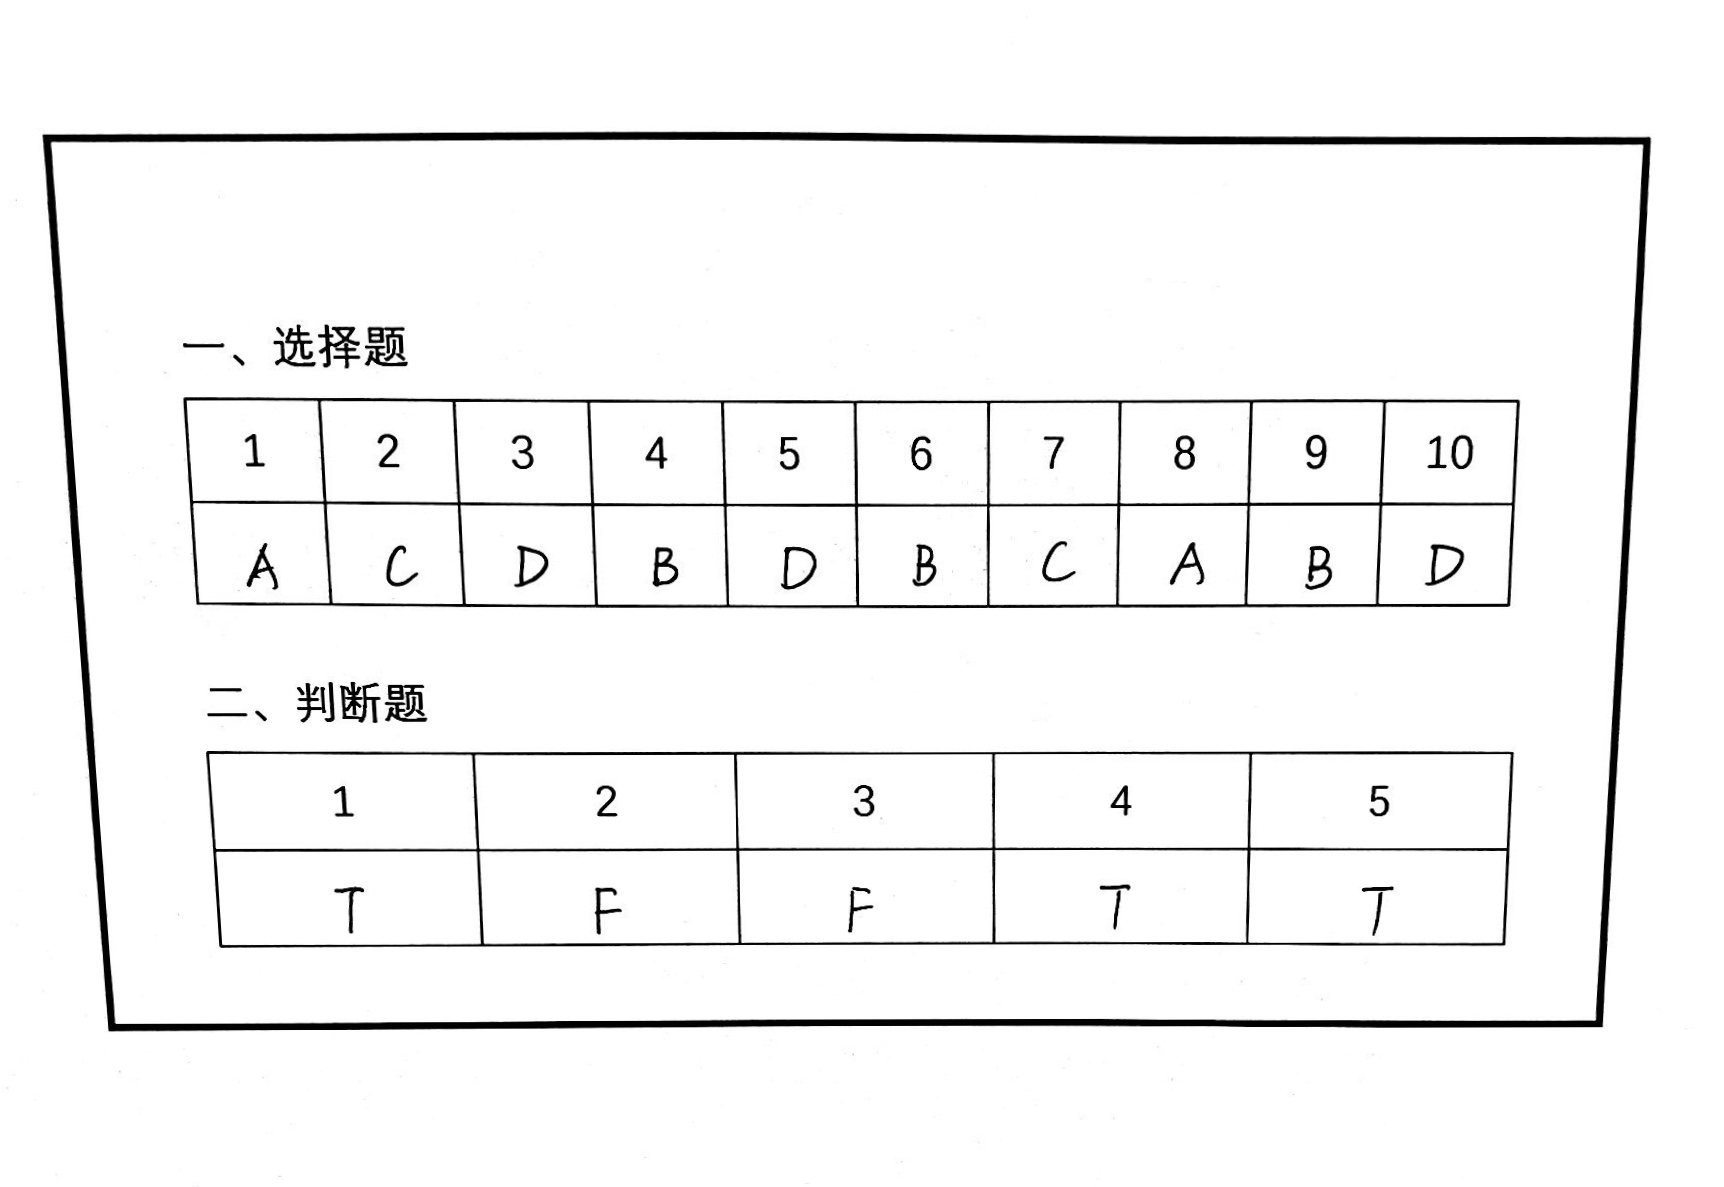 一、选择题
1 2 3 4 5 6 7 8 9 10
A C D B D B C A B D
二、判断题
1 2 3 4 5
T F F T T